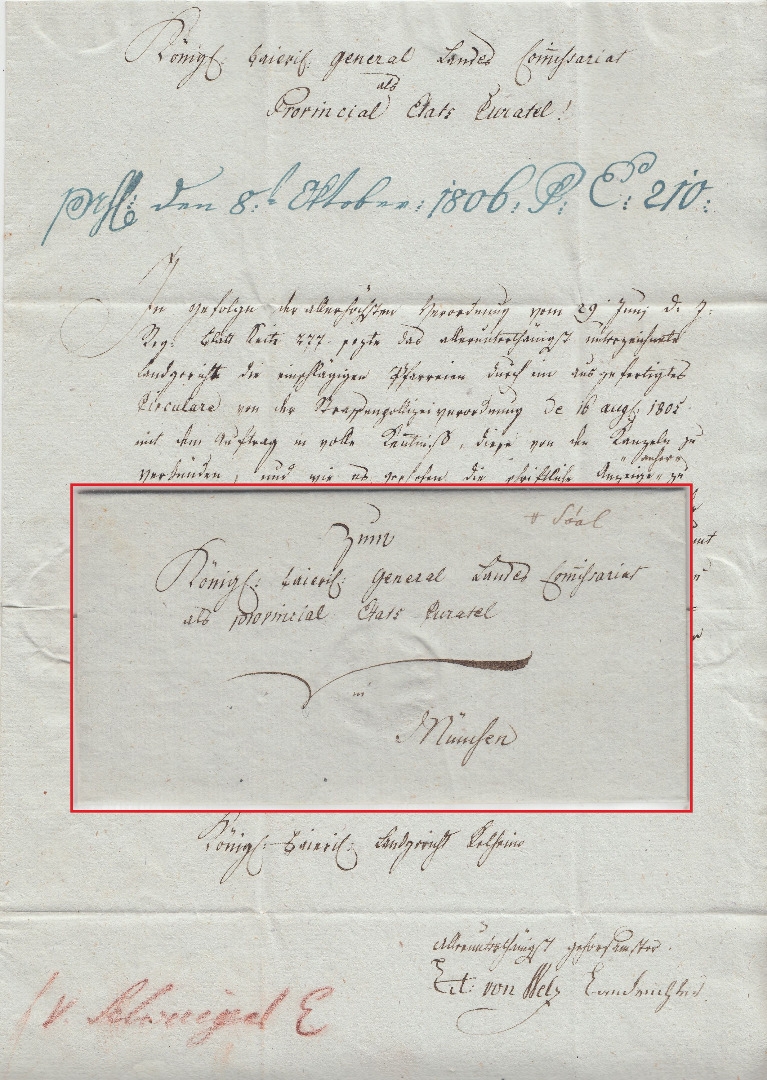 Königl: baieris: General Landes Com̅issariat
als
Provincial Etats Curatel!
prs: den 8.t Oktober: 1806: P: E: 210:
In gefolge der allerhöchsten Verordnung vom 29 Juni d. J:
Reg: Blatt Seite 277. sezte das allerunterthänigst unterzeichnete
Landgericht die einschlägigen Pfarreien durch ein ausgefertigtes
Circulare von der Strassenpolizeiverordnung de 16 aug: 1805
mit dem Auftrag in volle Kentniß, diese von der Kanzeln zu
verkünden, und wie es geschehen die schriftliche Anzeige zu
Zum
Königl: baieris: General Landes Com̅issariat
als provincial Etats Curatel
in
München
Königl: Baieris: Landgericht Kelheim
allerunterthänigst gehorsamster.
von Welz Landrichter